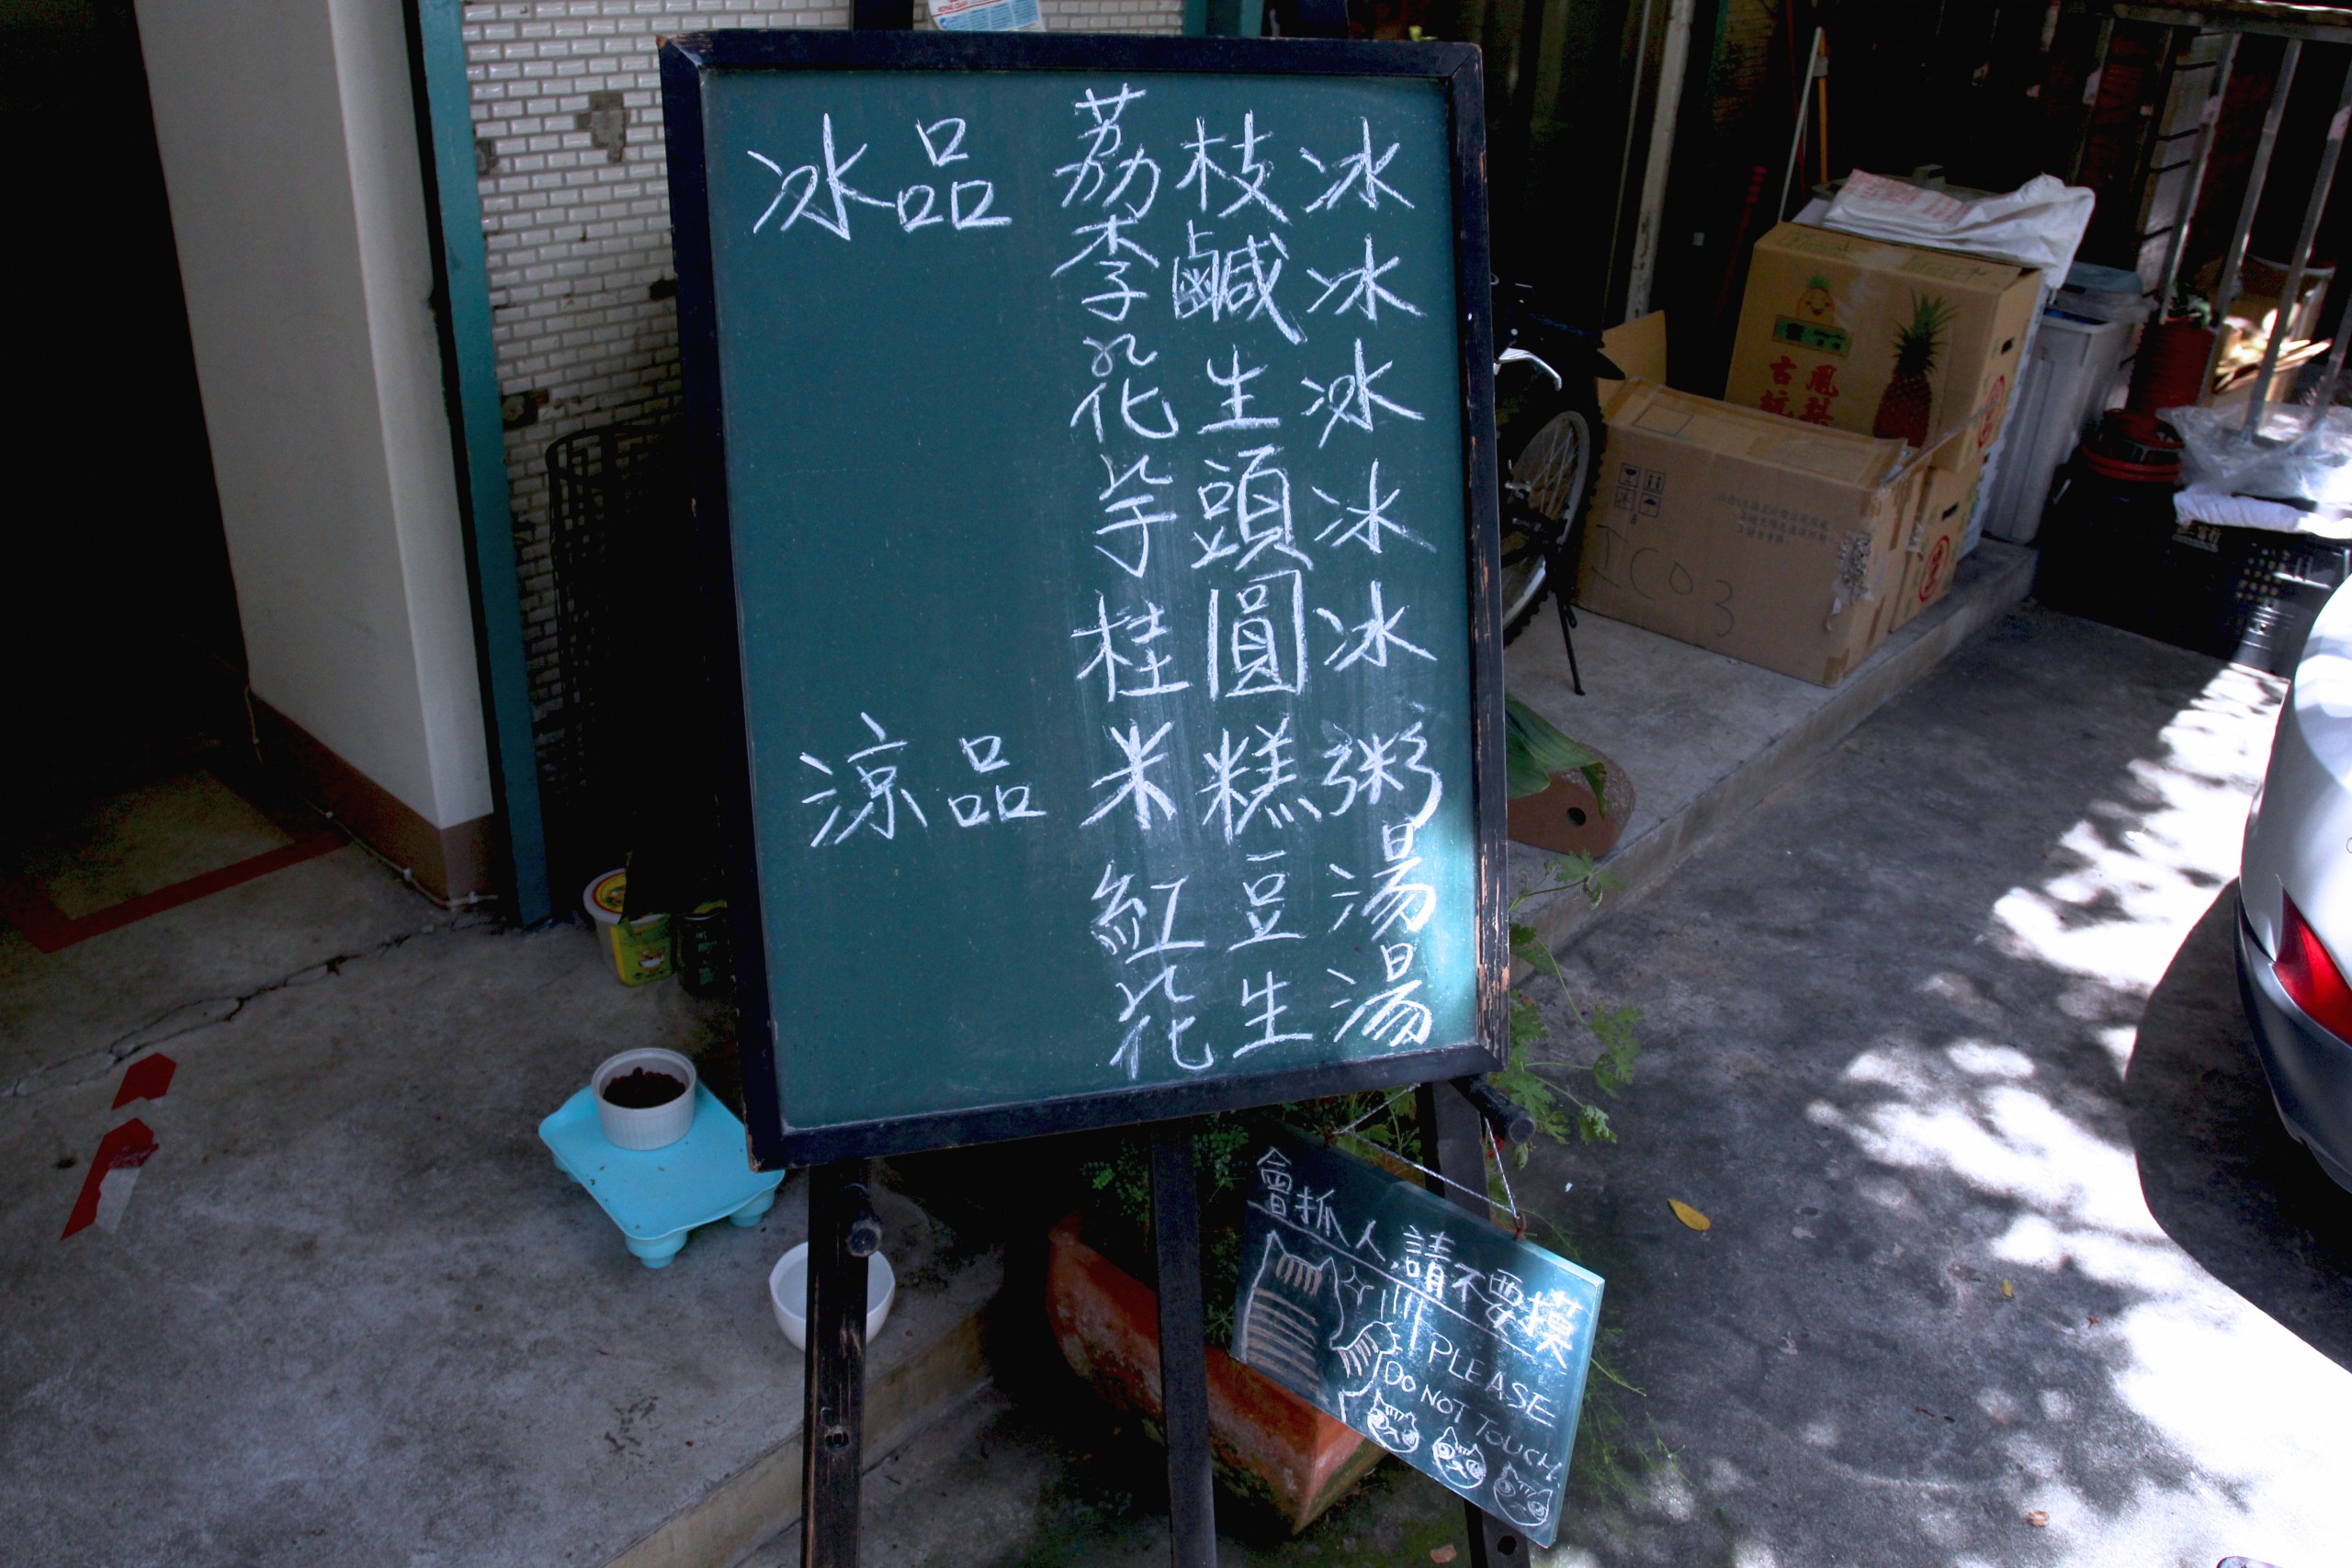 冰品 荔枝冰
李鹹冰
花生冰
芋頭冰
桂圓冰
涼品 米糕粥
紅豆湯
花生湯
會抓人,請不要摸
PLEASE
DO NOT TOUCH
古坑
鳳梨
ICO3